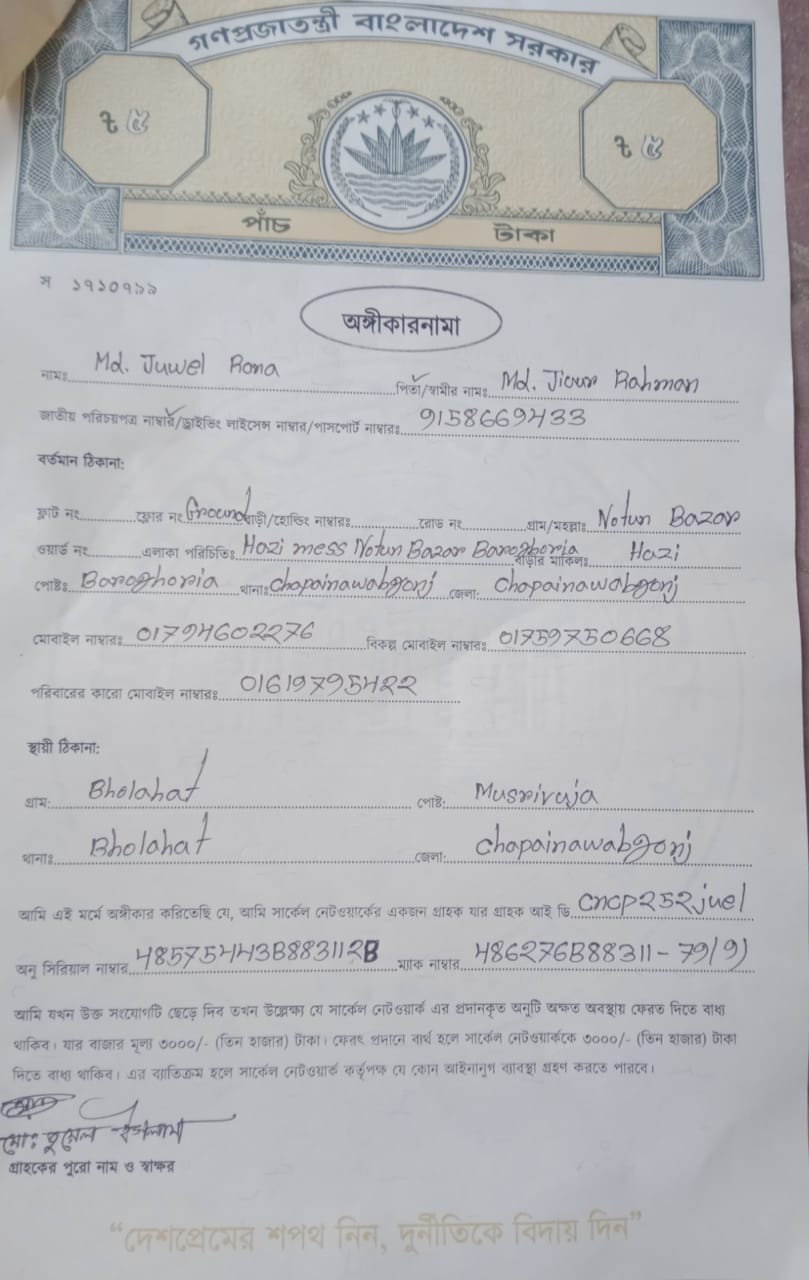 গণপ্রজাতন্ত্রী বাংলাদেশ সরকার
৳ ৫ ৳ ৫
পাঁচ টাকা
স ১৭১০৭৯৯
অঙ্গীকারনামা
নামঃ Md. Juwel Rona পিতা/স্বামীর নামঃ Md. Jiour Rahman
জাতীয় পরিচয়পত্র নাম্বার/ড্রাইভিং লাইসেন্স নাম্বার/পাসপোর্ট নাম্বারঃ 9158669433
বর্তমান ঠিকানা:
ফ্লাট নং ফ্লোর নং Ground বাড়ী/হোল্ডিং নাম্বারঃ রোড নং গ্রাম/মহল্লাঃ Notun Bazar
ওয়ার্ড নং এলাকা পরিচিতিঃ Hazi mess Notun Bazar Baroghoria বাড়ীর মালিকঃ Hazi
পোষ্টঃ Baroghoria থানাঃ chapainawabgonj জেলা: Chapainawabgonj
মোবাইল নাম্বারঃ 01794602276 বিকল্প মোবাইল নাম্বারঃ 01759750668
পরিবারের কারো মোবাইল নাম্বারঃ 01619795422
স্থায়ী ঠিকানা:
গ্রাম: Bholahat পোষ্ট: Musrivuja
থানাঃ Bholahat জেলা: Chapainawabgonj
আমি এই মর্মে অঙ্গীকার করিতেছি যে, আমি সার্কেল নেটওয়ার্কের একজন গ্রাহক যার গ্রাহক আই ডি CNCP252juel
অনু সিরিয়াল নাম্বার 48575443B883112B ম্যাক নাম্বার 486276B88311-79(9)
আমি যখন উক্ত সংযোগটি ছেড়ে দিব তখন উল্লেক্ষ্য যে সার্কেল নেটওয়ার্ক এর প্রদানকৃত অনুটি অক্ষত অবস্থায় ফেরত দিতে বাধ্য
থাকিব। যার বাজার মূল্য ৩০০০/- (তিন হাজার) টাকা। ফেরৎ প্রদানে ব্যর্থ হলে সার্কেল নেটওয়ার্ককে ৩০০০/- (তিন হাজার) টাকা
দিতে বাধ্য থাকিব। এর ব্যতিক্রম হলে সার্কেল নেটওয়ার্ক কর্তৃপক্ষ যে কোন আইনানুগ ব্যবস্থা গ্রহণ করতে পারবে।
মোঃ জুয়েল
গ্রাহকের পুরো নাম ও স্বাক্ষর
“দেশপ্রেমের শপথ নিন, দুর্নীতিকে বিদায় দিন”